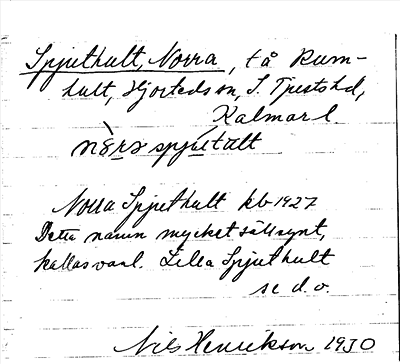 Spjuthult, Norra, tå Rum-
hult, Hjorteds sn, S. Tjusts hd,
Kalmar l.
nòrə spjútəlt
Norra Spjuthult kb 1927
Detta namn mycket sällsynt,
kallas vanl. Lilla Spjuthult
se d.o.
Nils Henrikson 1930